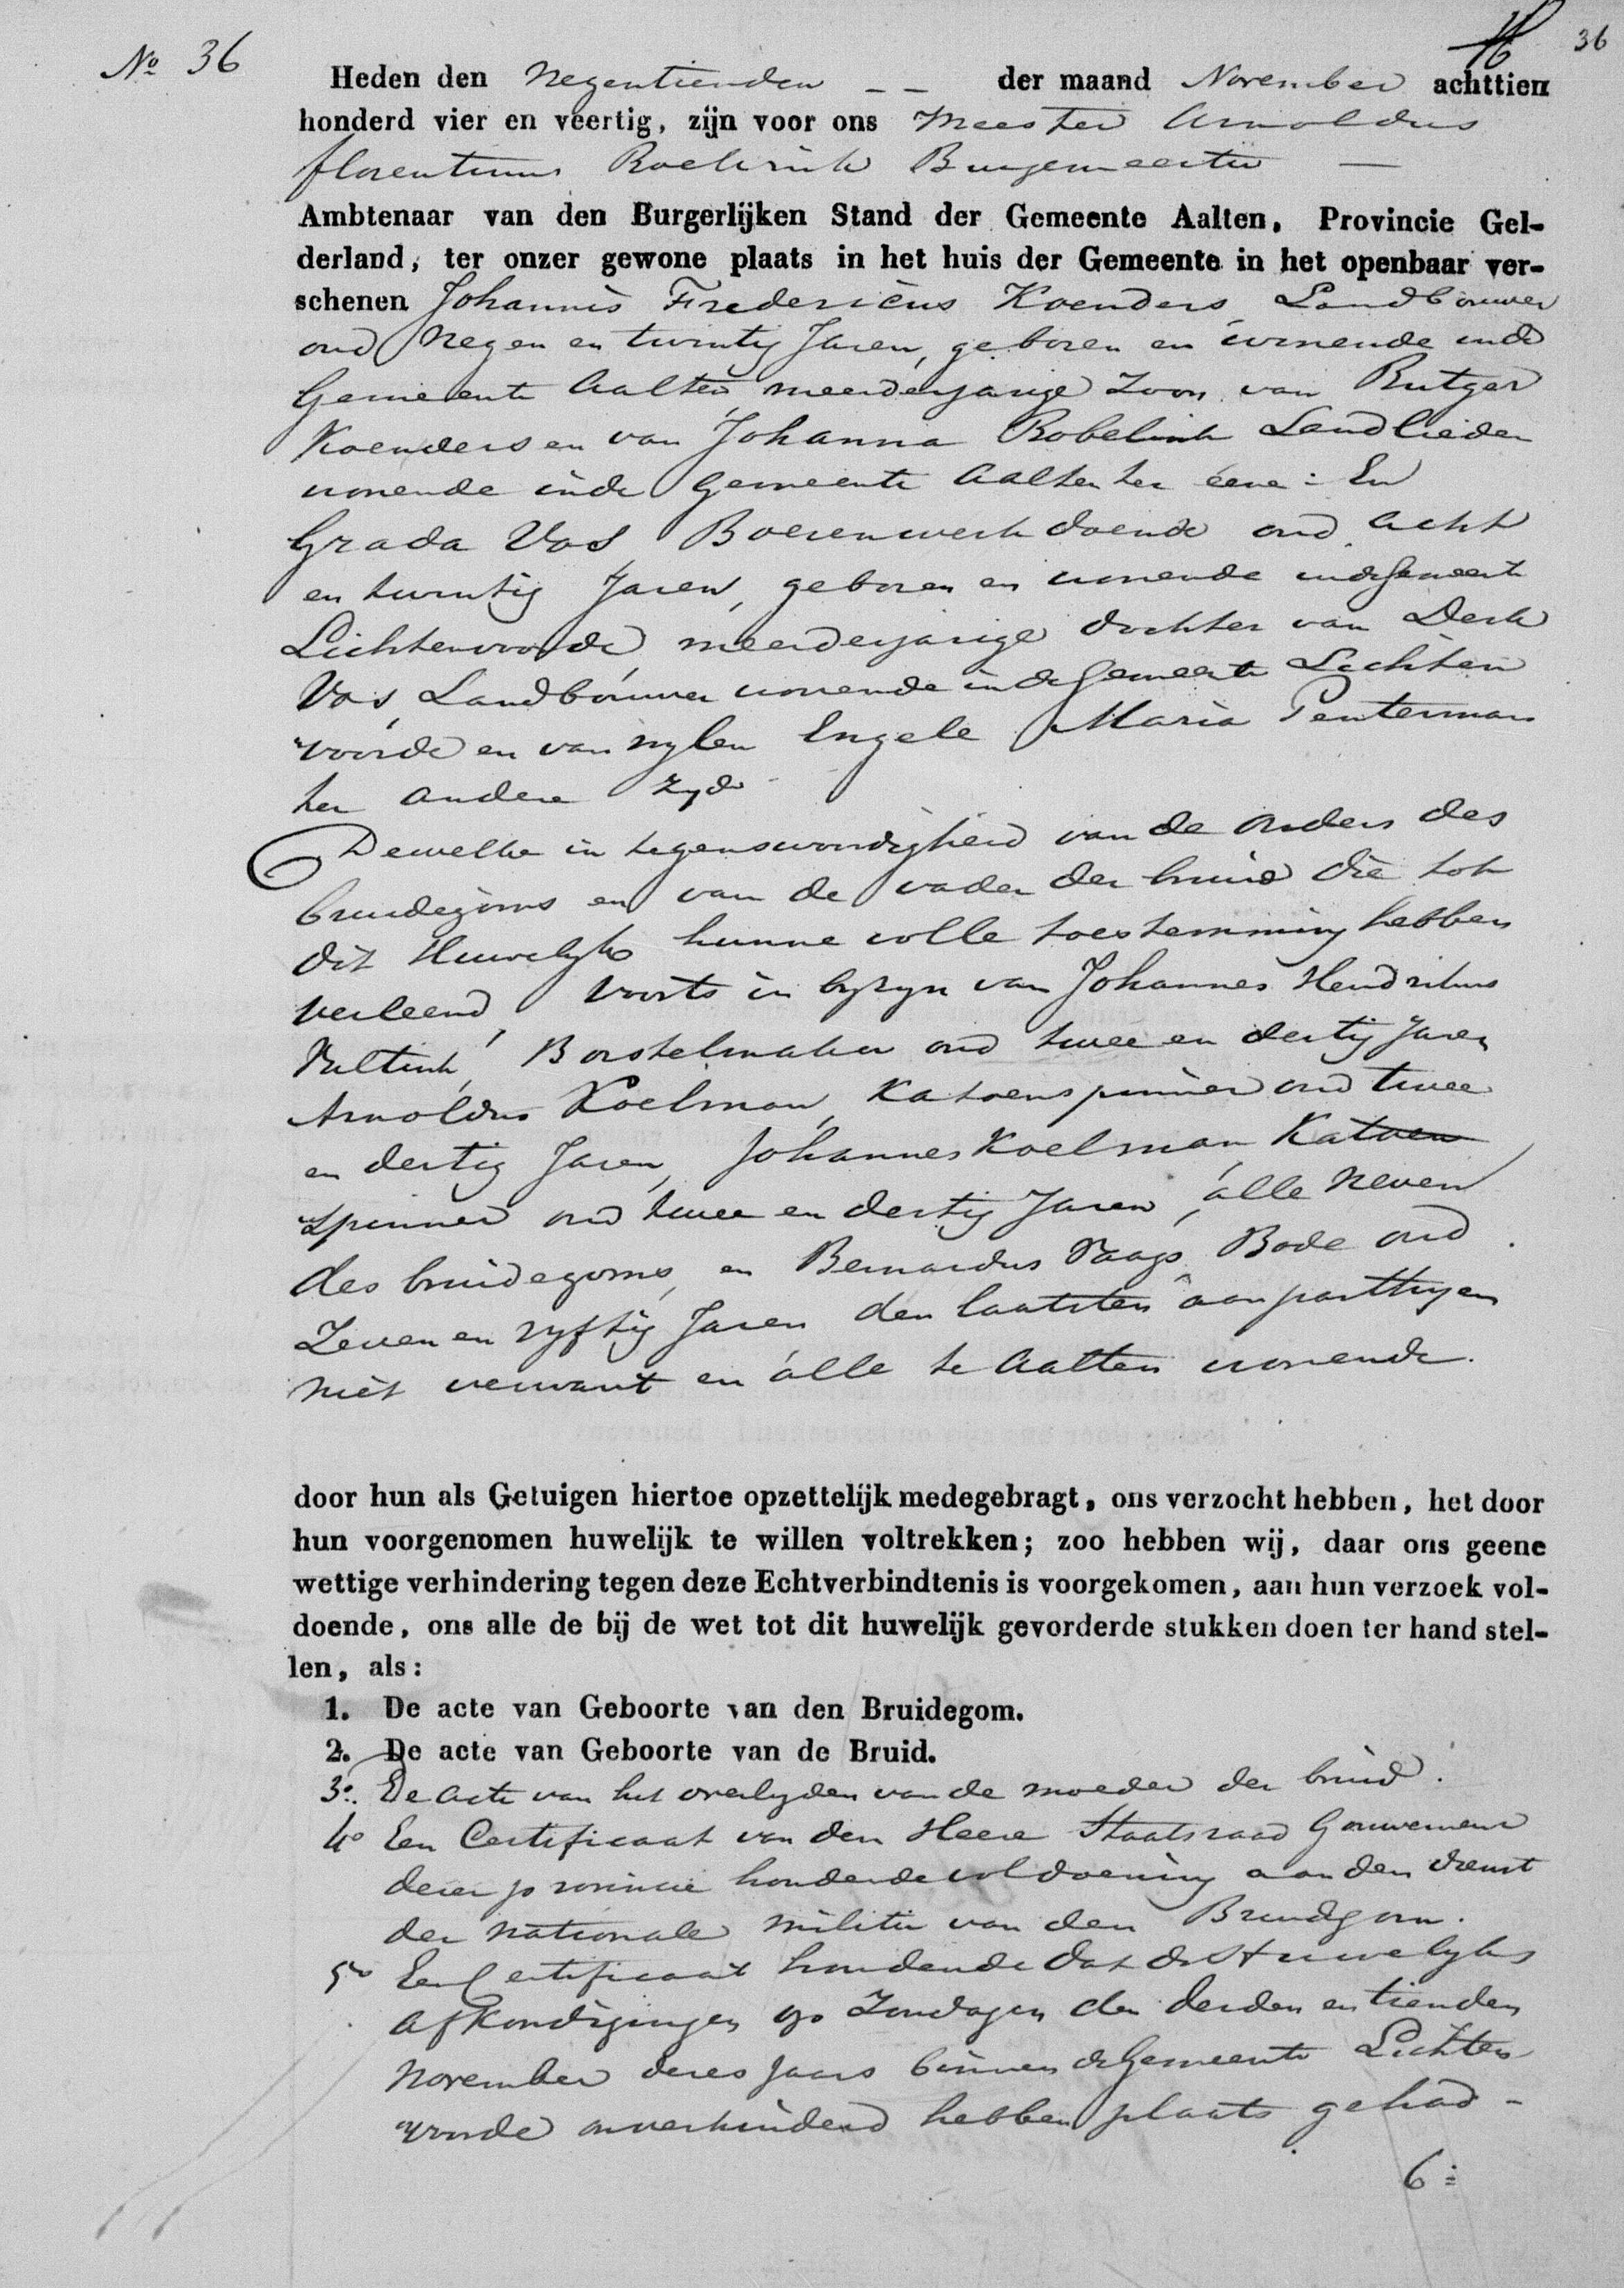 No 36
36
Heden den Negentienden – – der maand November achttien
honderd vier en veertig, zijn voor ons Meester Arnoldus
florentinus Roelvink Burgemeester —
Ambtenaar van den Burgerlijken Stand der Gemeente Aalten, Provincie Gel-
derland, ter onzer gewone plaats in het huis der Gemeente in het openbaar ver-
schenen Johannes Fredericus Koenders, Landbouwer
oud Negen en twintig Jaren, geboren en wonende inde
Gemeente Aalten meerderjarige Zoon van Rutger
Koenders en van Johanna Robelink Landlieden
wonende inde Gemeente Aalten ter eene: En
Grada Vos Boerenwerk doende oud acht
en twintig Jaren, geboren en wonende inde Gemeente
Lichtenvoorde meerderjarige dochter van Derk
Vos, Landbouwer wonende in de Gemeente Lichten
voorde en van wylen Engele Maria Penterman
ter andere zyde
Dewelke in tegenswoordigheid van de ouders des
bruidegoms en van de vader der bruid die tot
dit Huwelyk hunne volle toestemming hebben
verleend, voorts in byzyn van Johannes Hendrikus
Borstelmaker oud twee en dertig Jaren
Arnoldus Koelman, Katoenspinner oud twee
en dertig Jaren, Johannes Koelman Katoen
spinner oud twee en dertig Jaren, alle neven
des bruidegoms, en Bernardus Vaags Bode oud
Zeven en vyftig Jaren den laatsten aan parthyen
niet verwant en alle te Aalten wonende.
door hun als Getuigen hiertoe opzettelijk medegebragt, ons verzocht hebben, het door
hun voorgenomen huwelijk te willen voltrekken; zoo hebben wij, daar ons geene
wettige verhindering tegen deze Echtverbindtenis is voorgekomen, aan hun verzoek vol-
doende, ons alle de bij de wet tot dit huwelijk gevorderde stukken doen ter hand stel-
len, als:
1. De acte van Geboorte van den Bruidegom.
2. De acte van Geboorte van de Bruid.
3o. De acte van het overlyden van de moeder der bruid.
4o Een Certificaat van den Heere Staatsraad Gouverneur
dezer provincie houdende voldoening aan den dienst
der nationale militie van den Bruidgom.
5o Een Certificaat houdende dat de Huwelyks
afkondigingen op Zondagen den derden en tienden
November dezes Jaars binnen de Gemeente Lichten
voorde onverhinderd hebben plaats gehad –
6: